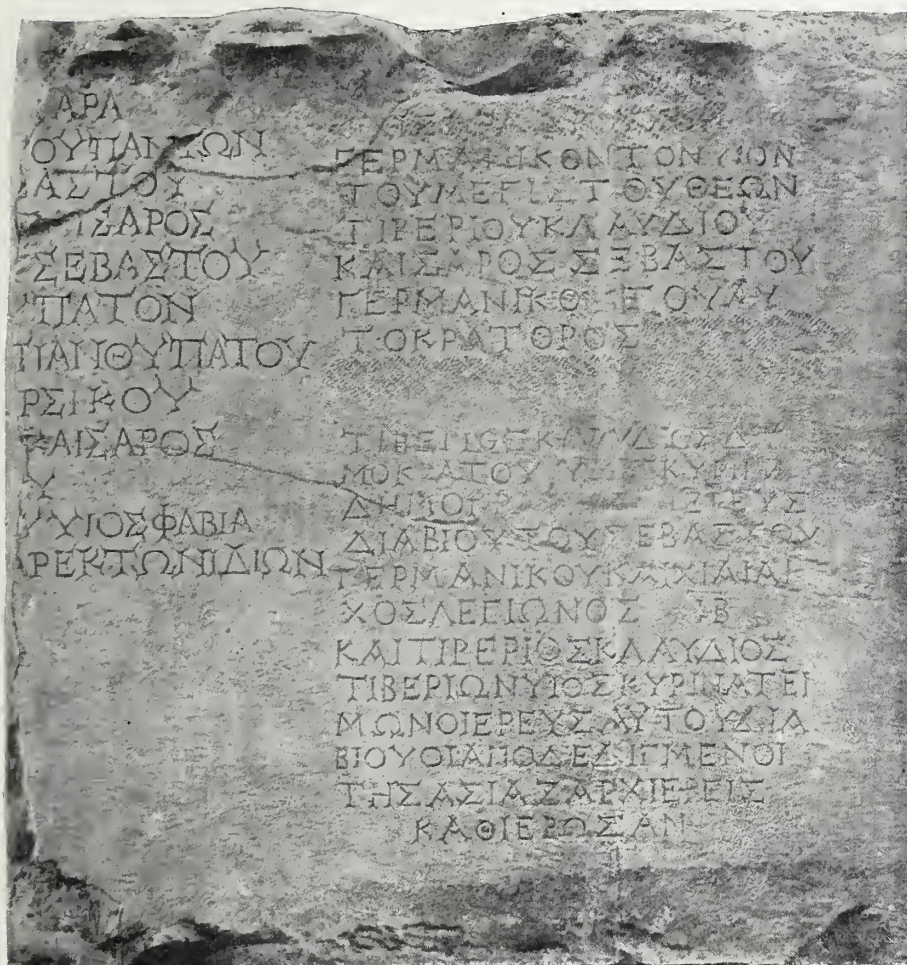 ΑΡΑ
ΟΥΠΑΝΤΩΝ
ΑΣΤΟΥ
ΙΣΑΡΟΣ
ΣΕΒΑΣΤΟΥ
ΠΑΤΟΝ
ΠΑΝΘΥΠΑΤΟΥ
ΡΣΙΚΟΥ
ΚΑΙΣΑΡΟΣ
Υ
ΥΙΟΣΦΑΒΙΑ
ΡΕΚΤΩΝΙΔΙΩΝ
ΓΕΡΜΑΝΙΚΟΝΤΟΝΥΙΟΝ
ΤΟΥΜΕΓΙΣΤΟΥΘΕΩΝ
ΤΙΒΕΡΙΟΥΚΛΑΥΔΙΟΥ
ΚΑΙΣΑΡΟΣΣΕΒΑΣΤΟΥ
ΓΕΡΜΑΝΙΚΟΥΤΟΥΑΥ
ΤΟΚΡΑΤΟΡΟΣ
ΤΙΒΕΡΙΟΣΚΛΑΥΔΙΟΣΔΑ
ΜΟΚΡΑΤΟΥΥΙΟΣΚΥΡΙΝΑ
ΔΙΑΒΙΟΥΤΟΥΣΕΒΑΣΤΟΥ
ΓΕΡΜΑΝΙΚΟΥΚΑΙΧΙΛΙΑΡ
ΧΟΣΛΕΓΙΩΝΟΣ ΙΒ
ΚΑΙΤΙΒΕΡΙΟΣΚΛΑΥΔΙΟΣ
ΤΙΒΕΡΙΩΝΥΙΟΣΚΥΡΙΝΑΤΕΙ
ΜΩΝΟΙΕΡΕΥΣΑΥΤΟΥΔΙΑ
ΒΙΟΥΟΙΑΠΟΔΕΔΙΓΜΕΝΟΙ
ΤΗΣΑΣΙΑΣΑΡΧΙΕΡΕΙΣ
ΚΑΘΙΕΡΩΣΑΝ